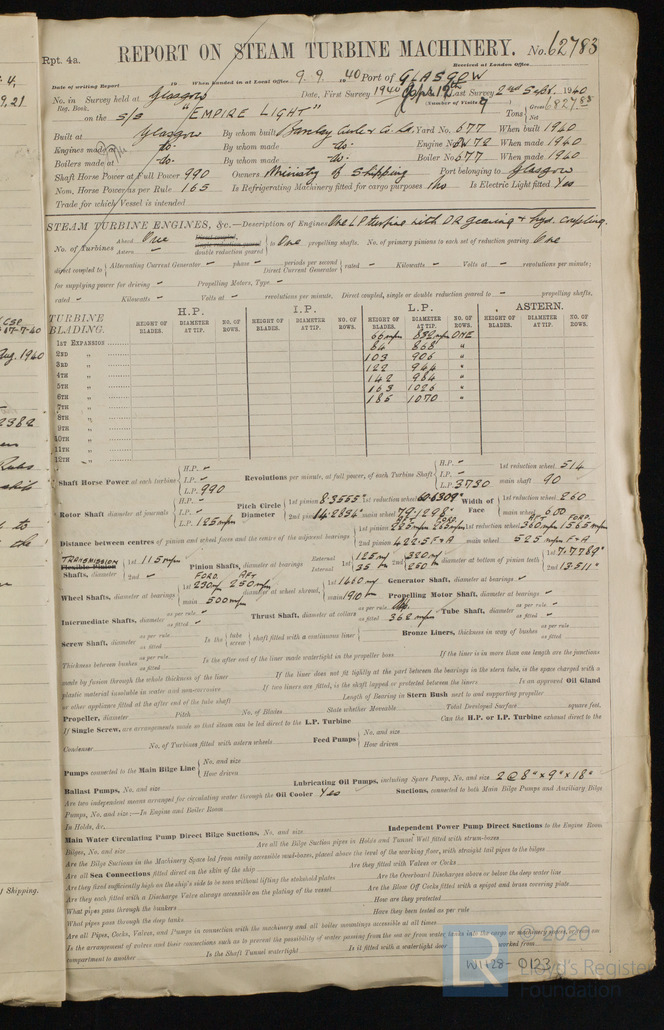 Rpt. 4a.
REPORT ON STEAM TURBINE MACHINERY. No. 62783
Received at London Office
Date of writing Report 19 When handed in at Local Office 9. 9. 1940 Port of GLASGOW
No. in Survey held at Glasgow Date, First Survey 1940 Last Survey 2nd Sept. 1940
Reg. Book. (Number of Visits 9
on the S/S "EMPIRE LIGHT" Tons Gross Net
Built at Glasgow By whom built Barclay Curle & Co. Ld. Yard No. 677 When built 1940
Engines made at do. By whom made do. Engine No. When made 1940
Boilers made at do. By whom made do. Boiler No. 677 When made 1940
Shaft Horse Power at Full Power 990 Owners Ministry of Shipping Port belonging to Glasgow
Nom. Horse Power as per Rule 165 Is Refrigerating Machinery fitted for cargo purposes no Is Electric Light fitted Yes
Trade for which Vessel is intended
STEAM TURBINE ENGINES, &c.—Description of Engines One L.P turbine with D.R gearing & hyd. coupling.
No. of Turbines Ahead One Astern Direct coupled, single reduction geared double reduction geared to One propelling shafts. No. of primary pinions to each set of reduction gearing One
direct coupled to Alternating Current Generator phase periods per second Direct Current Generator rated Kilowatts Volts at revolutions per minute;
for supplying power for driving Propelling Motors, Type
rated Kilowatts Volts at revolutions per minute. Direct coupled, single or double reduction geared to propelling shafts.
TURBINE BLADING. H.P. I.P. L.P. ASTERN.
HEIGHT OF BLADES. DIAMETER AT TIP. NO. OF ROWS. HEIGHT OF BLADES. DIAMETER AT TIP. NO. OF ROWS. HEIGHT OF BLADES. DIAMETER AT TIP. NO. OF ROWS. HEIGHT OF BLADES. DIAMETER AT TIP. NO. OF ROWS.
1ST EXPANSION 832 mm ONE
2ND " 84 868 "
3RD " 103 906 "
4TH " 122 944 "
5TH " 142 984 "
6TH " 163 1026 "
7TH " 185 1070 "
8TH "
9TH "
10TH "
11TH "
12TH "
Shaft Horse Power at each turbine H.P. I.P. L.P. 990 Revolutions per minute, at full power, of each Turbine Shaft H.P. I.P. L.P. 3730 1st reduction wheel 514 main shaft 90
Rotor Shaft diameter at journals H.P. I.P. L.P. 125 mm Pitch Circle Diameter 1st pinion 8.3555" 1st reduction wheel 60.6309" 2nd pinion 14.2834" main wheel 79.1298" Width of Face 1st reduction wheel 260 main wheel 600
Distance between centres of pinion and wheel faces and the centre of the adjacent bearings 1st pinion 1st reduction wheel 2nd pinion 422.5 F&A main wheel 525 mm F&A
TRANSMISSION
Flexible Pinion Shafts, diameter 1st 115 mm 2nd Pinion Shafts, diameter at bearings External Internal 1st 125 mm 35 2nd 320 mm 250 diameter at bottom of pinion teeth 1st 7.7789" 2nd 13.511"
Wheel Shafts, diameter at bearings FORD. AFT 1st 230 mm 250 mm main 500 mm diameter at wheel shroud, 1st 1660 mm main 1910 mm Generator Shaft, diameter at bearings
Propelling Motor Shaft, diameter at bearings
Intermediate Shafts, diameter as per rule as fitted Thrust Shaft, diameter at collars as per rule as fitted 362 mm Tube Shaft, diameter as per rule as fitted
Screw Shaft, diameter as per rule as fitted Is the tube screw shaft fitted with a continuous liner Bronze Liners, thickness in way of bushes as per rule as fitted
Thickness between bushes as per rule as fitted Is the after end of the liner made watertight in the propeller boss If the liner is in more than one length are the junctions
made by fusion through the whole thickness of the liner If the liner does not fit tightly at the part between the bearings in the stern tube, is the space charged with a
plastic material insoluble in water and non-corrosive If two liners are fitted, is the shaft lapped or protected between the liners Is an approved Oil Gland
or other appliance fitted at the after end of the tube shaft Length of Bearing in Stern Bush next to and supporting propeller
Propeller, diameter Pitch No. of Blades State whether Moveable Total Developed Surface square feet.
If Single Screw, are arrangements made so that steam can be led direct to the L.P. Turbine Can the H.P. or I.P. Turbine exhaust direct to the
Condenser No. of Turbines fitted with astern wheels Feed Pumps No. and size How driven
Pumps connected to the Main Bilge Line No. and size How driven
Ballast Pumps, No. and size Lubricating Oil Pumps, including Spare Pump, No. and size 2 @ 8" x 9" x 18"
Are two independent means arranged for circulating water through the Oil Cooler Yes Suctions, connected to both Main Bilge Pumps and Auxiliary Bilge
Pumps, No. and size:—In Engine and Boiler Room
In Holds, &c.
Main Water Circulating Pump Direct Bilge Suctions, No. and size Independent Power Pump Direct Suctions to the Engine Room
Bilges, No. and size Are all the Bilge Suction pipes in Holds and Tunnel Well fitted with strum-boxes
Are the Bilge Suctions in the Machinery Space led from easily accessible mud-boxes, placed above the level of the working floor, with straight tail pipes to the bilges
Are all Sea Connections fitted direct on the skin of the ship Are they fitted with Valves or Cocks
Are they fixed sufficiently high on the ship's side to be seen without lifting the stokehold plates Are the Overboard Discharges above or below the deep water line
Are they each fitted with a Discharge Valve always accessible on the plating of the vessel Are the Blow Off Cocks fitted with a spigot and brass covering plate
What pipes pass through the bunkers How are they protected
What pipes pass through the deep tanks Have they been tested as per rule
Are all Pipes, Cocks, Valves, and Pumps in connection with the machinery and all boiler mountings accessible at all times
Is the arrangement of valves and their connections such as to prevent the possibility of water passing from the sea or from water tanks into the cargo or machinery spaces, or from one
compartment to another Is the Shaft Tunnel watertight Is it fitted with a watertight door worked from
© 2020
Lloyd's Register
Foundation
W1128-0123